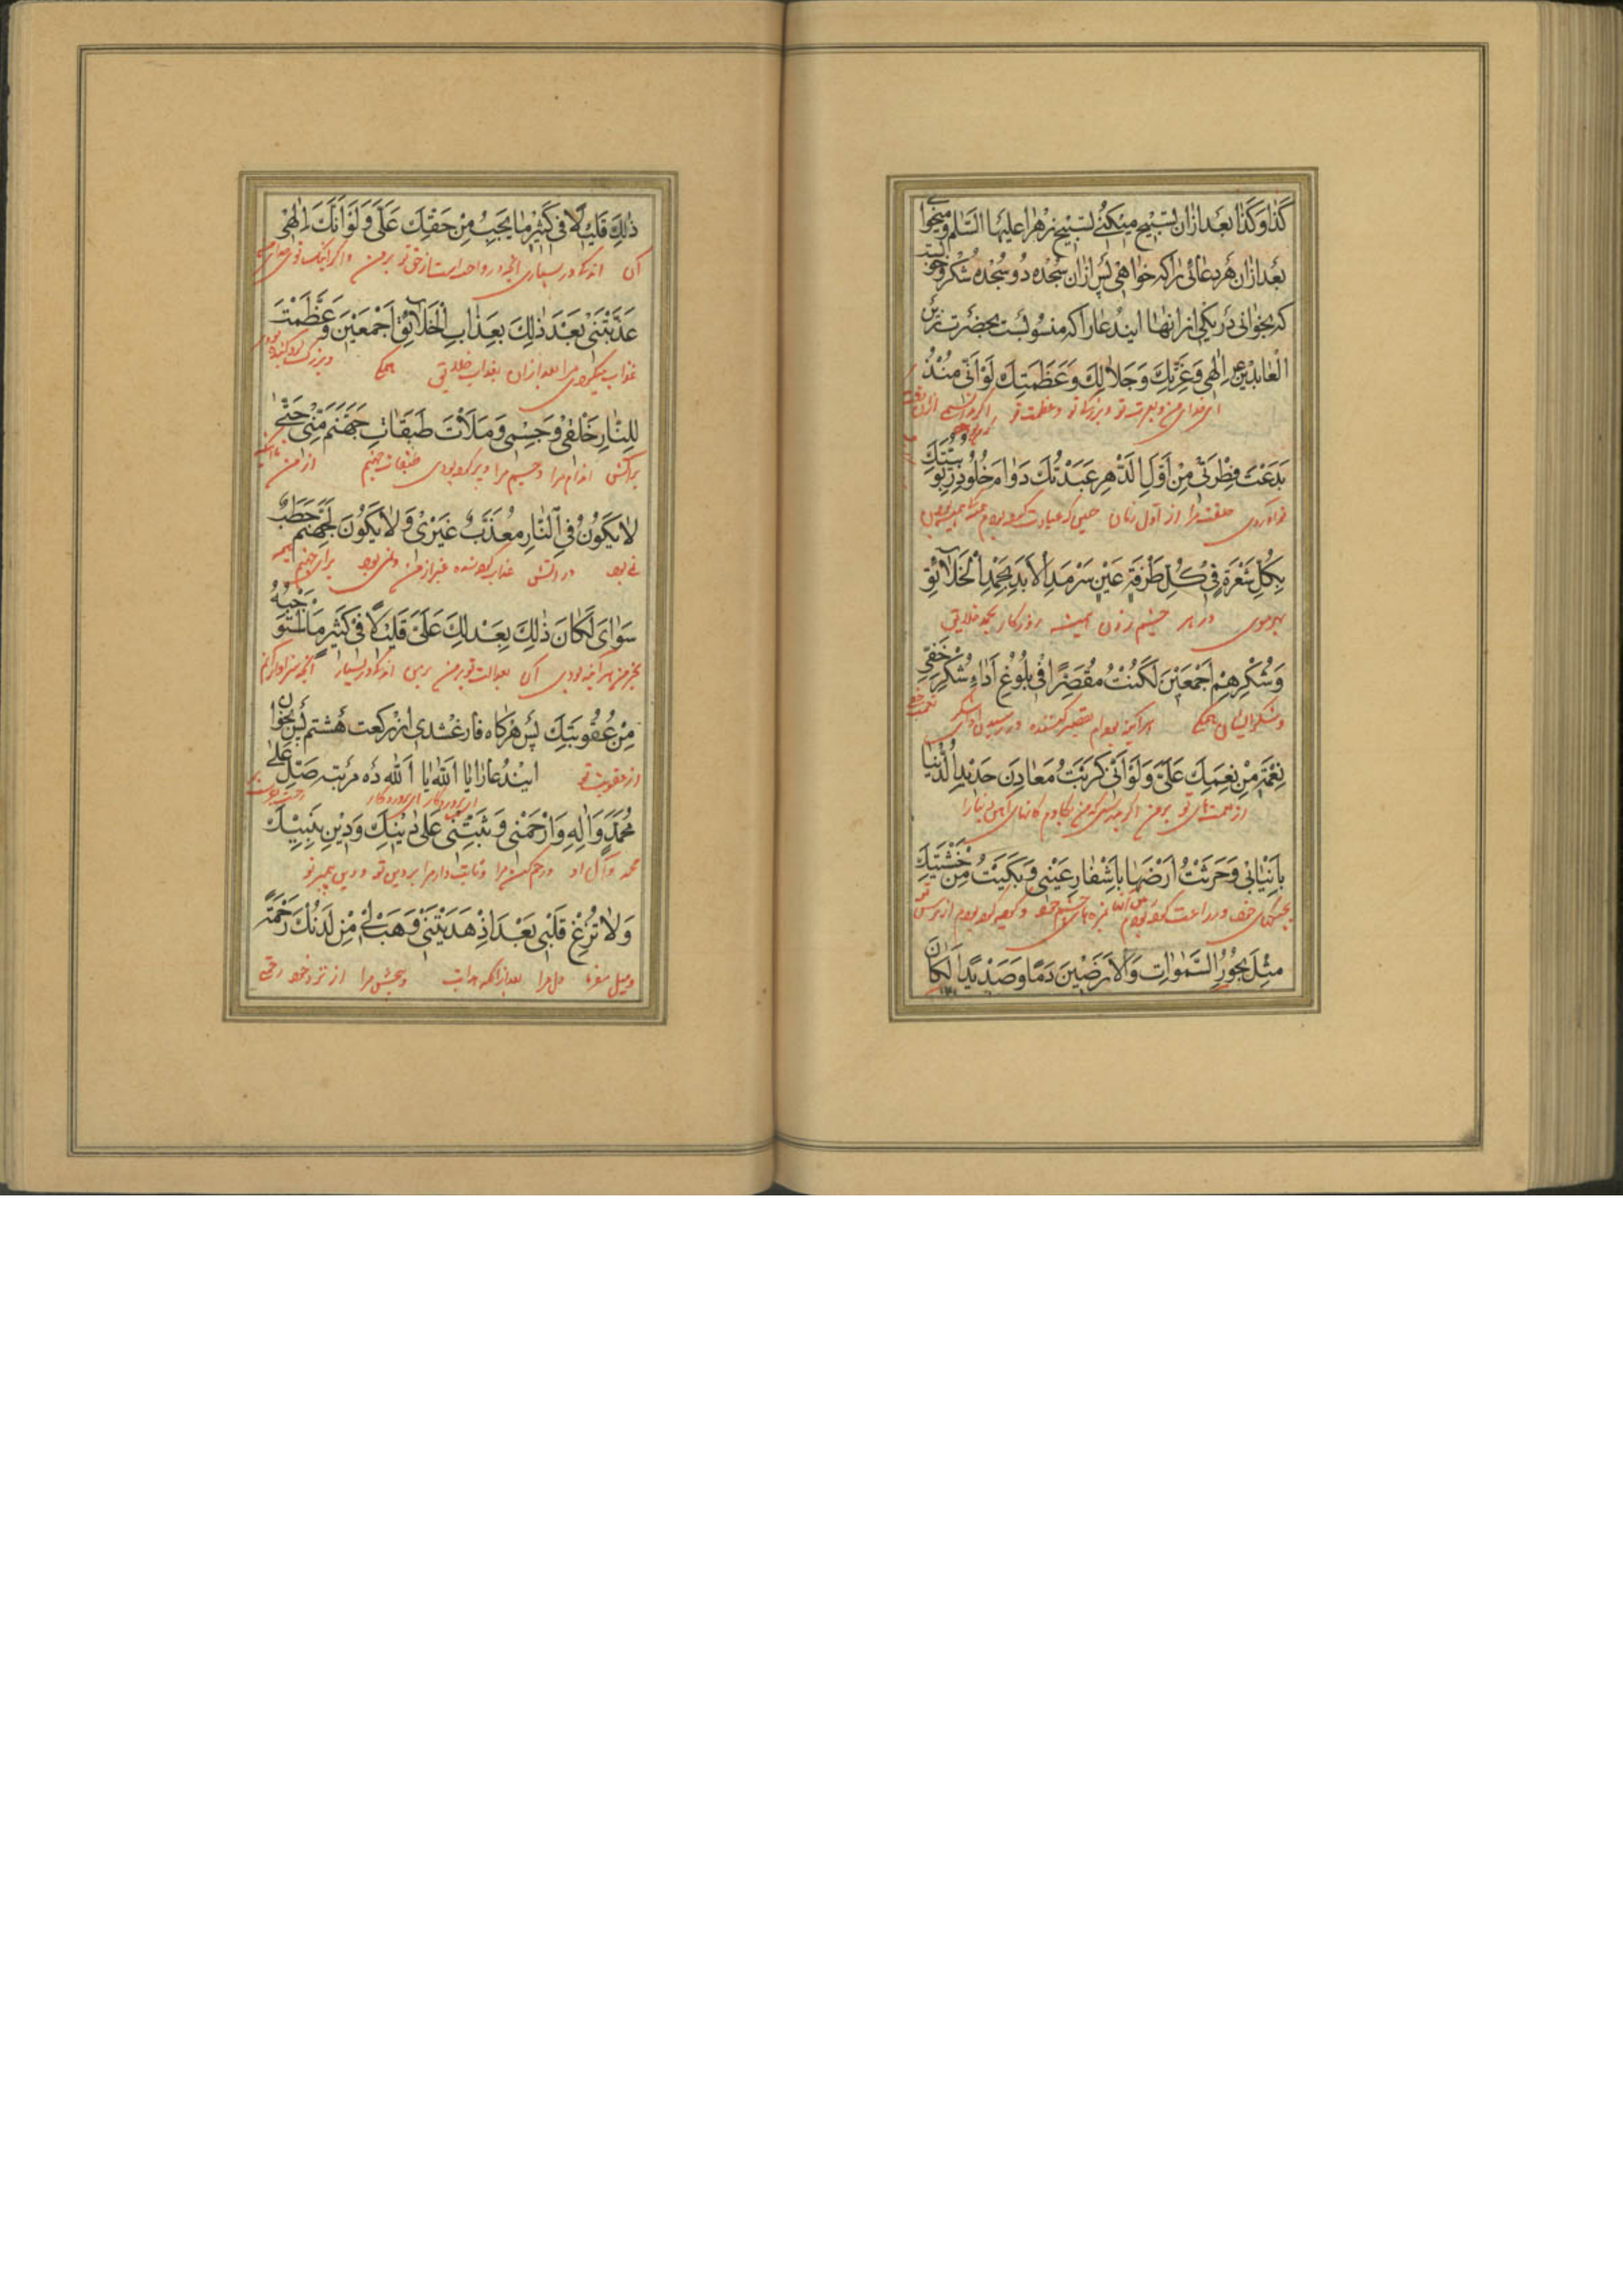 كذا و كذا بعد ازان تسبیح میكنی تسبیح زهرا علیها السلام و میخوانی
بعد ازان هر دعائی را كه خواهی پس ازان سجده دو سجده شكر و خوبست
كه بخوانی در یكی از انها ایندعا را كه منسوبست بحضرت زین
العابدین ع اِلٰهی وَعِزَّتِكَ وَجَلالِكَ وَعَظَمَتِكَ لَوْ اَنّی مُنْذُ
ای خدای من بعزت تو و بزرگی تو و عظمت تو
بَدَعْتَ فِطْرَتی مِنْ اَوَّلِ الدَّهْرِ عَبَدْتُكَ دَوامَ خُلُودِ رُبُوبِیَّتِكَ
خلقت مرا از اول زمان
بِكُلِّ شَعْرَةٍ فی كُلِّ طَرْفَةِ عَیْنٍ سَرْمَدَ الْاَبَدِ بِحَمْدِ الْخَلائِقِ
بهر موی در هر چشم زدن همیشه روزگار بحمد خلایق
وَشُكْرِهِمْ اَجْمَعینَ لَكُنْتُ مُقَصِّرًا فی بُلُوغِ اَداءِ شُكْرِ خَفِیِّ
و شكر ایشان همگی هر آینه بودم تقصیر كننده در رسیدن ادای شكر
نِعْمَةٍ مِنْ نِعَمِكَ عَلَیَّ وَلَوْ اَنّی كَرَبْتُ مَعادِنَ حَدیدِ الدُّنْیا
از نعمت های تو بر من
بِاَنْیابی وَحَرَثْتُ اَرْضَها بِاَشْفارِ عَیْنی وَبَكَیْتُ مِنْ خَشْیَتِكَ
مِثْلَ بُحُورِ السَّمٰواتِ وَالْاَرَضینَ دَمًا وَصَدیدًا لَكانَ
ذٰلِكَ قَلیلًا فی كَثیرِ ما یَجِبُ مِنْ حَقِّكَ عَلَیَّ وَلَوْ اَنَّكَ اِلٰهی
آن اندك در بسیاری آنچه واجب است از حق تو بر من
عَذَّبْتَنی بَعْدَ ذٰلِكَ بِعَذابِ الْخَلائِقِ اَجْمَعینَ وَعَظَّمْتَ
عذاب میكردی مرا بعد ازان بعذاب خلایق همگی
لِلنّارِ خَلْقی وَجِسْمی وَمَلَأْتَ طَبَقاتِ جَهَنَّمَ مِنّی حَتّٰی
برای آتش اندام مرا و جسم مرا و پر كرده بودی طبقات جهنم از من تا آنكه
لا یَكُونُ فِی النّارِ مُعَذَّبٌ غَیْری وَلا یَكُونَ لِجَهَنَّمَ حَطَبٌ
نمی بود در آتش عذاب كرده شده غیر از من و نمی بود برای جهنم هیمه
سِوایَ لَكانَ ذٰلِكَ بِعَدْلِكَ عَلَیَّ قَلیلًا فی كَثیرِ مَا اسْتَوْجَبَهُ
بجز من هر آینه بودی آن بعدالت تو بر من
مِنْ عُقُوبَتِكَ پس هر گاه فارغ شدی از ركعت هشتم پس بخوان
از عقوبت تو
ایندعا را یا اَللّٰه یا اَللّٰه ده مرتبه صَلِّ عَلٰی
ای پروردگار ای پروردگار رحمت بفرست بر
مُحَمَّدٍ وَالِهِ وَارْحَمْنی وَثَبِّتْنی عَلٰی دینِكَ وَدینِ نَبِیِّكَ
محمد و آل او و رحم كن مرا و ثابت دار مرا بر دین تو و دین پیغمبر تو
وَلا تُزِغْ قَلْبی بَعْدَ اِذْ هَدَیْتَنی وَهَبْ لی مِنْ لَدُنْكَ رَحْمَةً
و میل مفرما دل مرا بعد از آنكه هدایت و ببخش مرا از نزد خود رحمتی